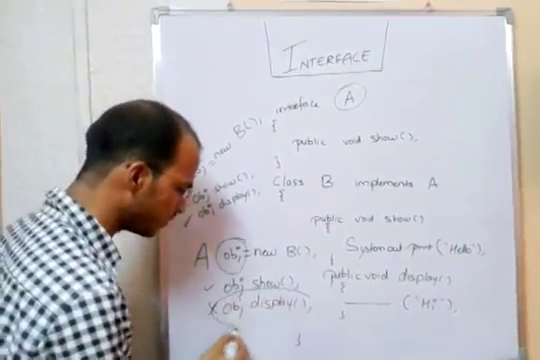 INTERFACE
interface A
{
public void show();
}
class B implements A
{
public void show()
{
System.out.print("Hello");
}
public void display()
{
("Hi");
}
}
= new B();
obj show();
✓ obj display();
A obj = new B();
✓ obj show();
X obj display();